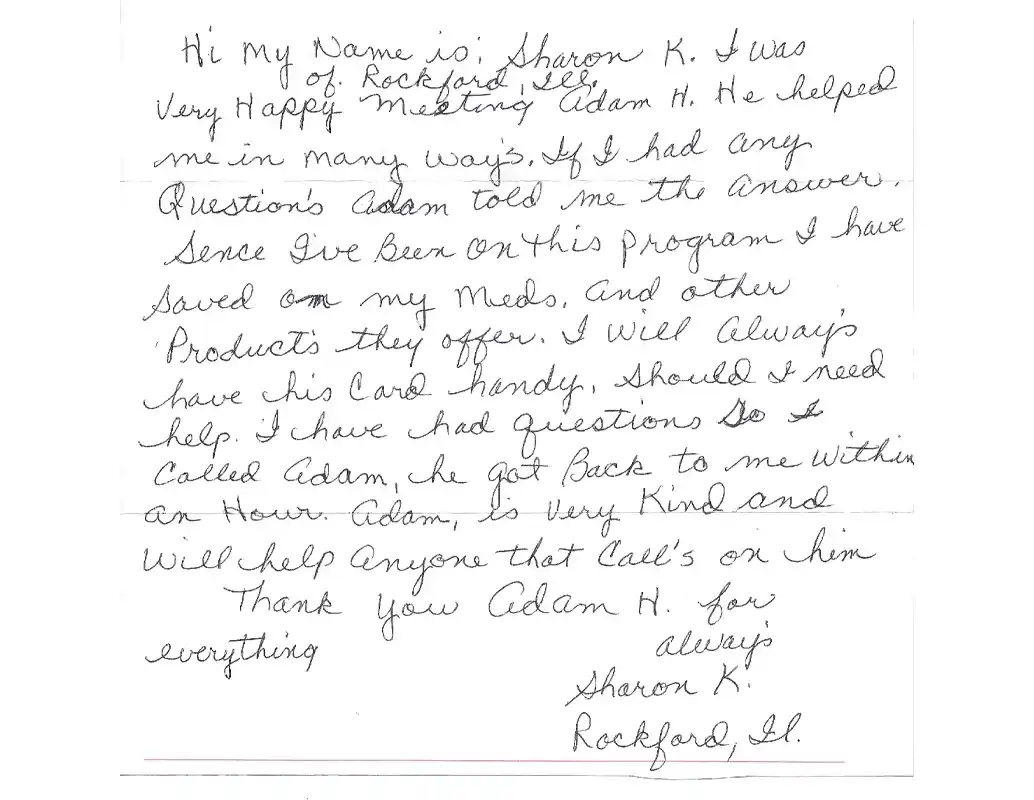 Hi My Name is: Sharon K. I was
of. Rockford, Ill.
Very Happy Meeting Adam H. He helped
me in many way's. If I had any
Question's Adam told me the answer.
Sence I've Been on this program I have
saved on my Meds. and other
Product's they offer. I will always
have his Card handy. Should I need
help. I have had questions so I
Called Adam, he got Back to me within
an Hour. Adam, is very Kind and
will help anyone that Call's on him
Thank you Adam H. for
everything always
Sharon K.
Rockford, Il.